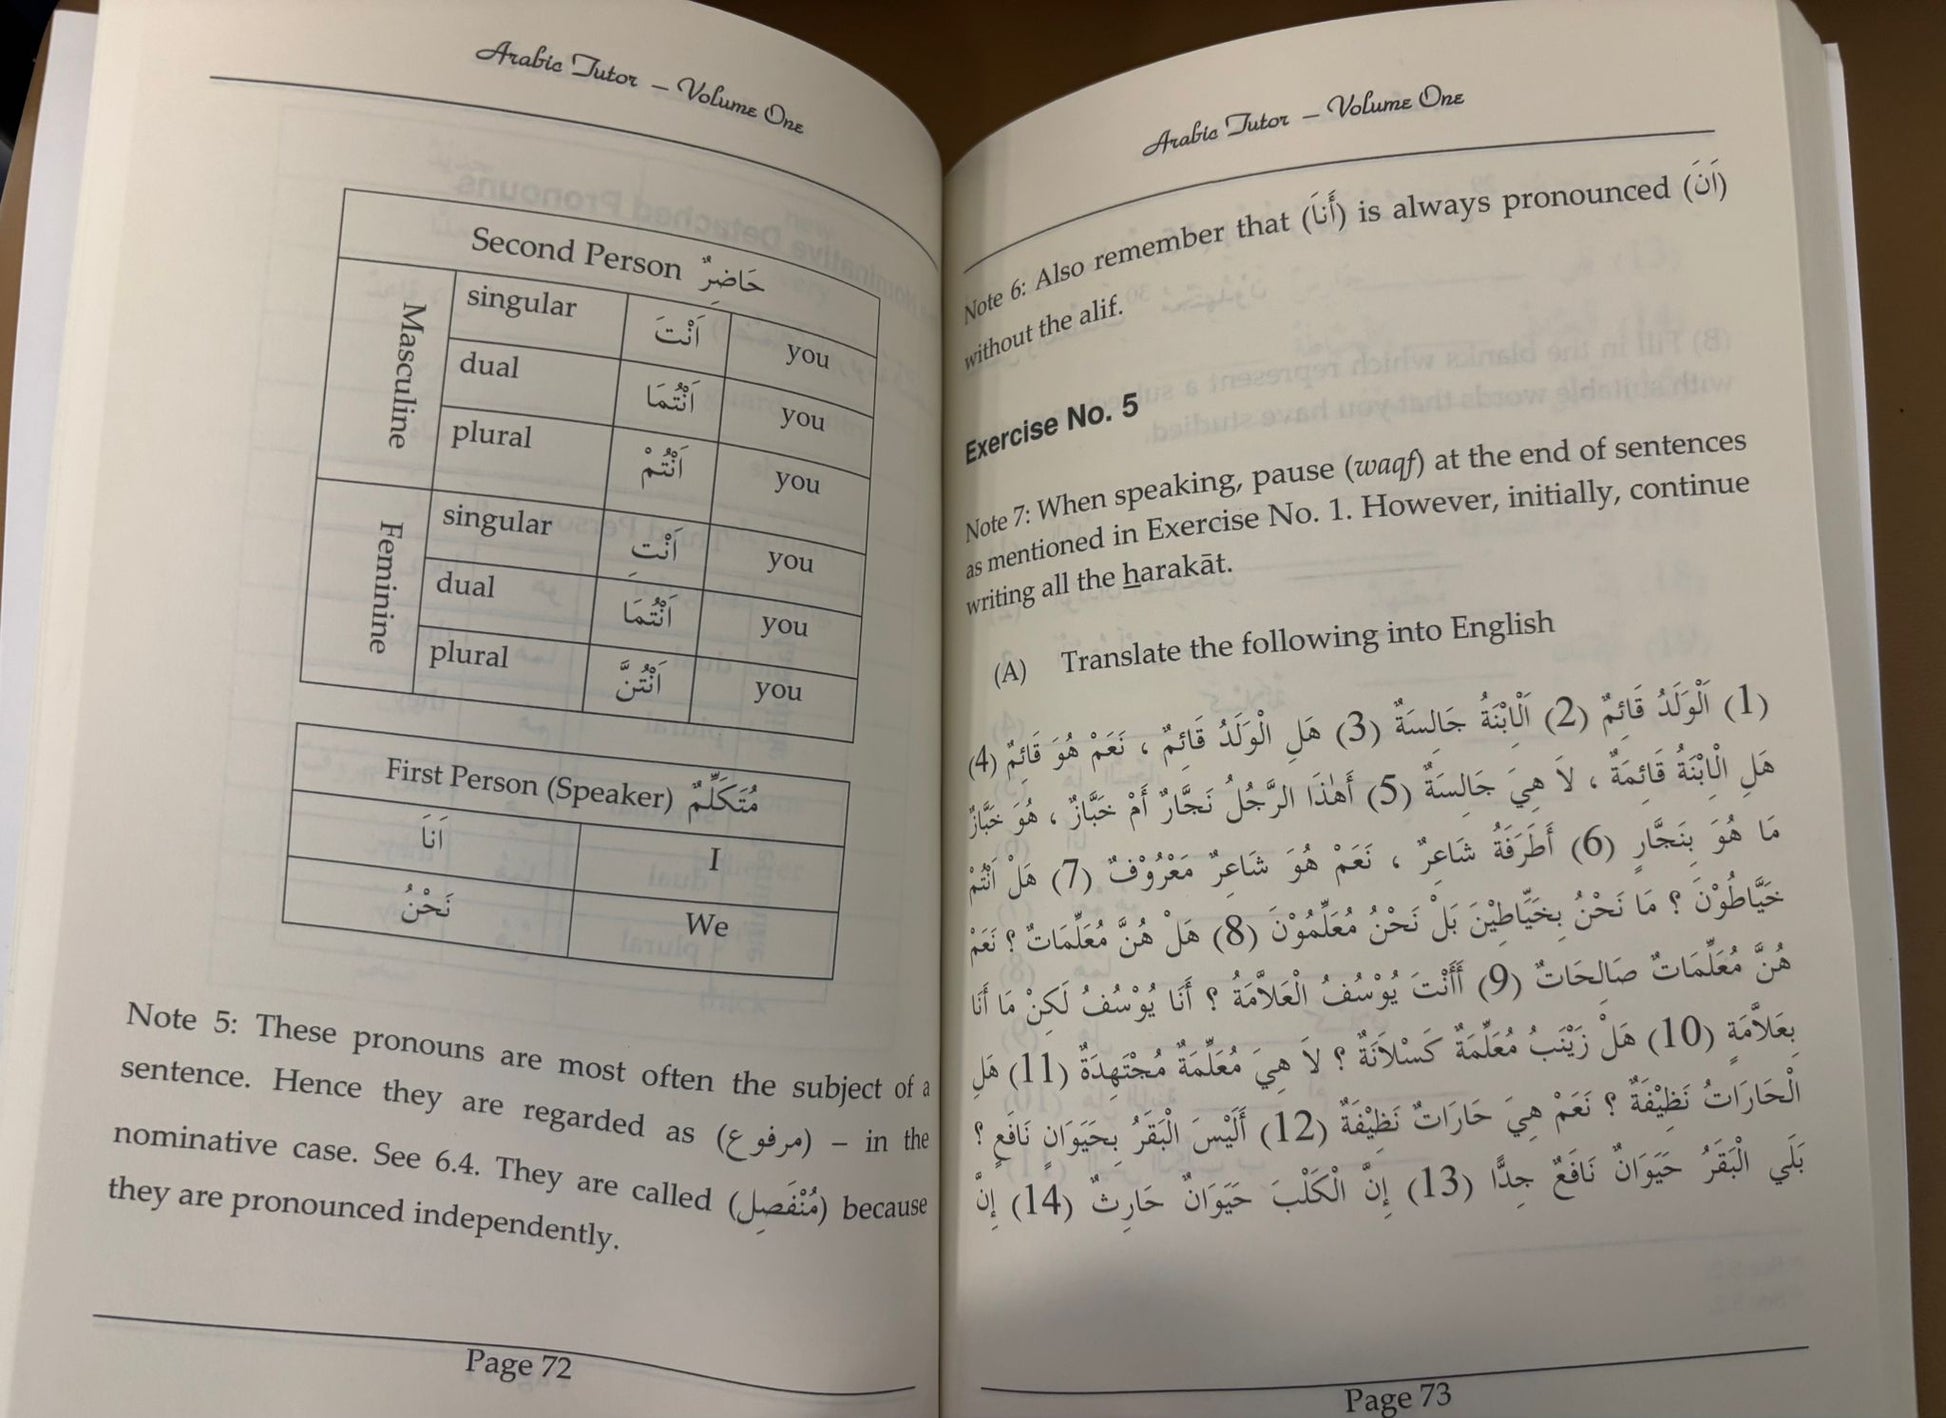 Arabic Tutor – Volume One
Second Person حَاضِرٌ
Masculine
singular اَنْتَ you
dual اَنْتُمَا you
plural اَنْتُمْ you
Feminine
singular اَنْتِ you
dual اَنْتُمَا you
plural اَنْتُنَّ you
First Person (Speaker) مُتَكَلِّمٌ
اَنَا I
نَحْنُ We
Note 5: These pronouns are most often the subject of a
sentence. Hence they are regarded as (مرفوع) – in the
nominative case. See 6.4. They are called (مُنْفَصِل) because
they are pronounced independently.
Page 72
Arabic Tutor – Volume One
Note 6: Also remember that (أَنَا) is always pronounced (اَنَ)
without the alif.
Exercise No. 5
Note 7: When speaking, pause (waqf) at the end of sentences
as mentioned in Exercise No. 1. However, initially, continue
writing all the harakāt.
(A) Translate the following into English
(1) اَلْوَلَدُ قَائِمٌ (2) اَلْاِبْنَةُ جَالِسَةٌ (3) هَلِ الْوَلَدُ قَائِمٌ ، نَعَمْ هُوَ قَائِمٌ (4)
هَلِ الْاِبْنَةُ قَائِمَةٌ ، لاَ هِيَ جَالِسَةٌ (5) أَهٰذَا الرَّجُلُ نَجَّارٌ أَمْ خَبَّازٌ ، هُوَ خَبَّازٌ
مَا هُوَ بِنَجَّارٍ (6) أَطَرَفَةُ شَاعِرٌ ، نَعَمْ هُوَ شَاعِرٌ مَعْرُوْفٌ (7) هَلْ اَنْتُمْ
خَيَّاطُوْنَ ؟ مَا نَحْنُ بِخَيَّاطِيْنَ بَلْ نَحْنُ مُعَلِّمُوْنَ (8) هَلْ هُنَّ مُعَلِّمَاتٌ ؟ نَعَمْ
هُنَّ مُعَلِّمَاتٌ صَالِحَاتٌ (9) أَأَنْتَ يُوْسُفُ الْعَلاَّمَةُ ؟ أَنَا يُوْسُفُ لَكِنْ مَا أَنَا
بِعَلاَّمَةٍ (10) هَلْ زَيْنَبُ مُعَلِّمَةٌ كَسْلاَنَةٌ ؟ لاَ هِيَ مُعَلِّمَةٌ مُجْتَهِدَةٌ (11) هَلِ
الْحَارَاتُ نَظِيْفَةٌ ؟ نَعَمْ هِيَ حَارَاتٌ نَظِيْفَةٌ (12) أَلَيْسَ الْبَقَرُ بِحَيَوَانٍ نَافَعٍ ؟
بَلَي الْبَقَرُ حَيَوَانٌ نَافَعٌ جِدًّا (13) إِنَّ الْكَلْبَ حَيَوَانٌ حَارِثٌ (14) إِنَّ
Page 73